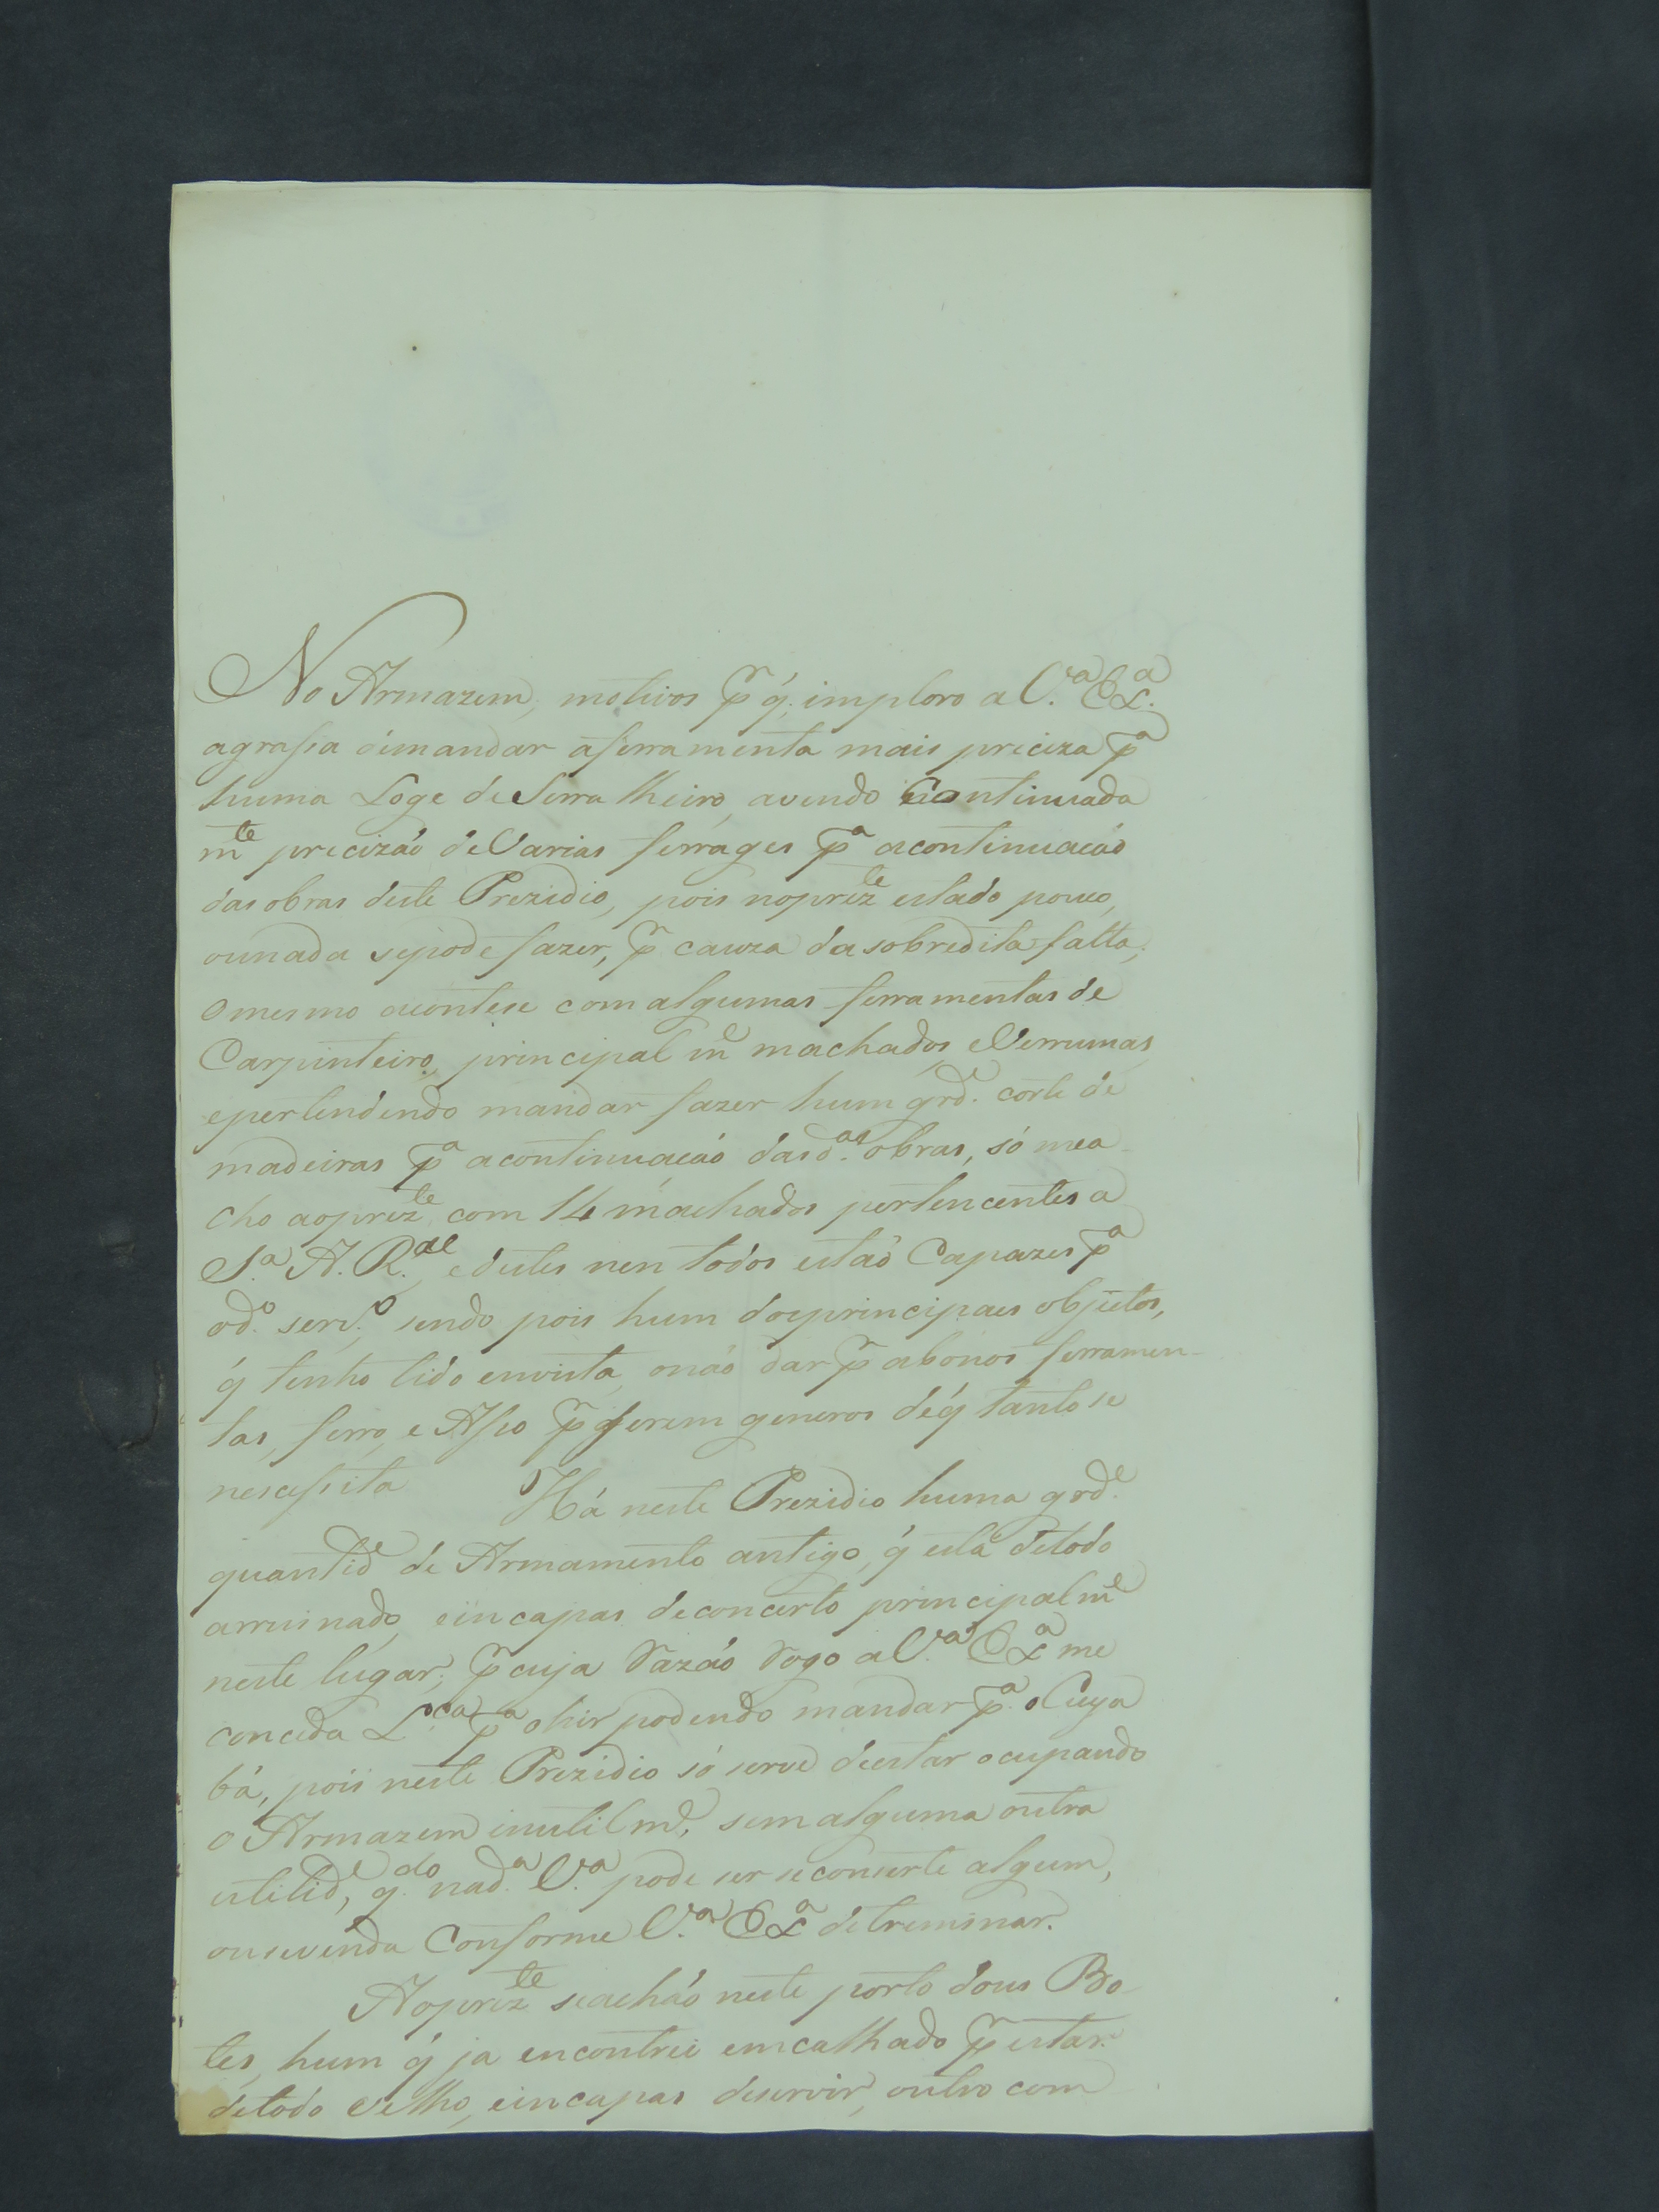 No Armazem, motivos pr q̃. imploro a V.ª Ex.ª
agrassa demandar aferramenta mais preciza pª
huma Loge de Serralheiro, avendo Continuada
mte precizaõ de Varias ferrages pª acontinuacaõ
das obras deste Prezidio, pois noprezte estado pouco,
ounada sepode fazer, pr cauza dasobredita falta,
omesmo acontese comalgumas ferramentas de
Carpinteiro, principalme machados, eVerrumas,
epertendendo mandar fazer hum grde. corte de
madeiras pª acontinuacaõ dasd.as obras, só mea-
cho aoprezte com 14 machados pertencentes a
S.ª A. R.al, edestes nen todos estaõ Capazes pª
od.º serv.º, sendo pois hum dosprincipaes objectos,
q̃ tenho tido envista, onaõ dar pr abonos ferramen-
tas, ferro, e Asso pr serem generos deq̃ tanto se
nescessita Há neste Prezidio huma grde.
quantide de Armamento antigo, q̃ está detodo
arruinado, eincapas deconcerto principalme
neste lugar; pr cuja Razaõ Rogo a V.ª Exª me
conceda L.ca pª ohir podendo mandar pª. o Cuya
bá, pois neste Prezidio só serve deestar ocupando
o Armazem inutilme, sem alguma outra
utilide, q.do nad.ª V.ª pode ser seconserte algum,
ousevenda Conforme V.ª Exª detreminar.
Aoprezte seachaõ neste porto dous Bo-
tes, hum q̃ ja encontrei emcalhado pr estar
detodo velho, eincapas deservir, outro com